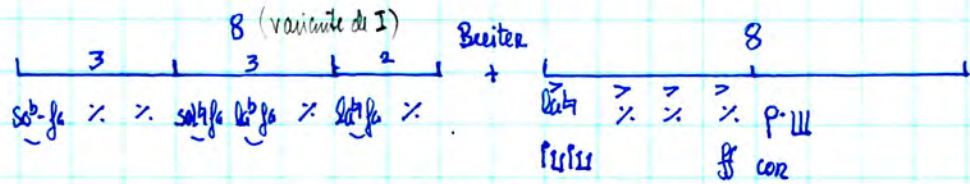 8 (variante de I) Breiter 8
3 3 2 +
sol♭-fa % % sol♮fa la♭fa % la♮fa % . la♮ > % > % > % p. III
ff cor